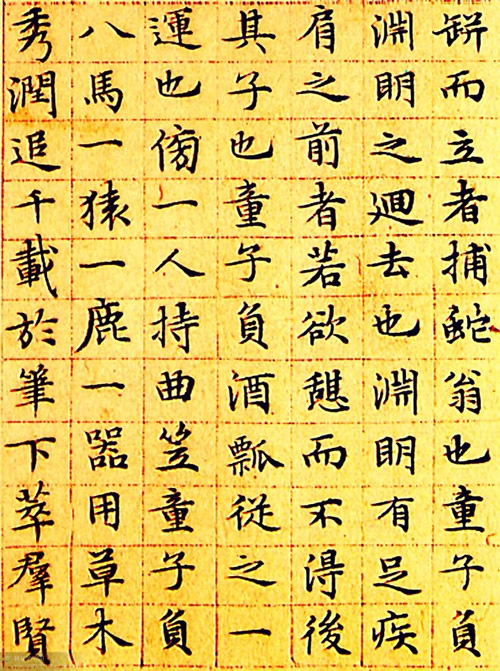 缾而立者捕虵翁也童子負
淵明之廻去也淵明有足疾
肩之前者若欲憩而不得後
其子也童子負酒瓢從之一
運也傍一人持曲笠童子負
八馬一猿一鹿一器用草木
秀潤追千載於筆下萃羣賢